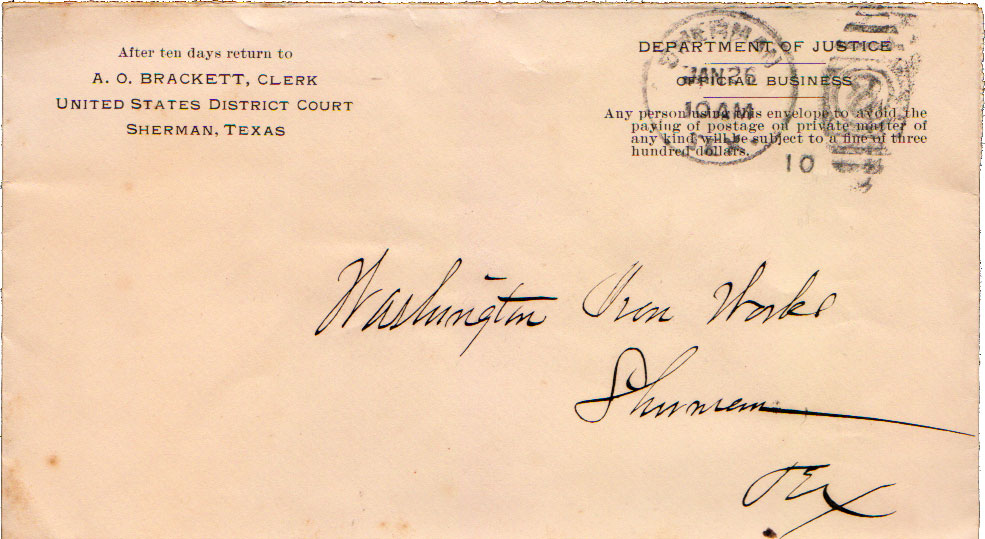 After ten days return to
A. O. BRACKETT, CLERK
UNITED STATES DISTRICT COURT
SHERMAN, TEXAS
DEPARTMENT OF JUSTICE
OFFICIAL BUSINESS
Any person using this envelope to avoid the
paying of postage on private matter of
any kind will be subject to a fine of three
hundred dollars.
SHERMAN
JAN 26
10 AM
TEX.
10
2
Washington Iron Works
Sherman
Tex